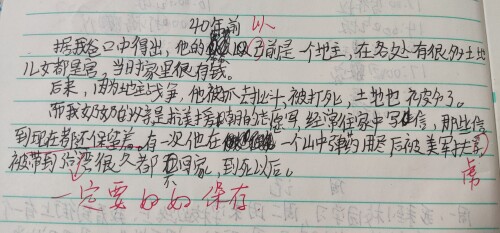 40年前 以
据我爸口中得出，他的以(前是一个地主，在各处有很多土地
儿女都是官，当时家里很有钱。
后来，因为地主战争，他被抓去批斗，被打死，土地也被分了。
而我奶奶的爷爷是抗美援朝的志愿军，经常往家中写信，那些信
到现在都还保留着。有一次他在一个山中弹药用尽后被美军抓去
被带到台湾很久都不回家，到死以后。
虏
一定要好好保存